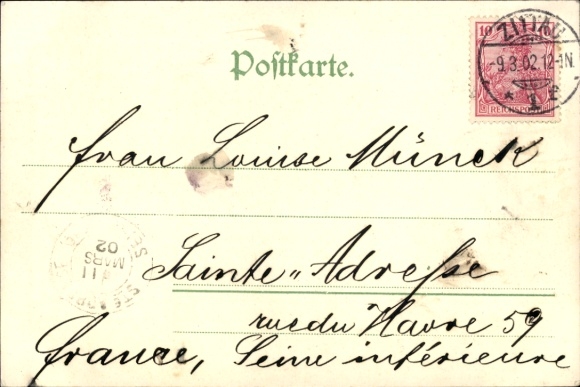 Postkarte.
10
REICHSPOST
ZITTAU
-9.3.02.12-1N.
* 1 f
Frau Louise Münck
Sainte„Adresse
rue du Havre 59
France, Seine inférieure
11
MARS
02